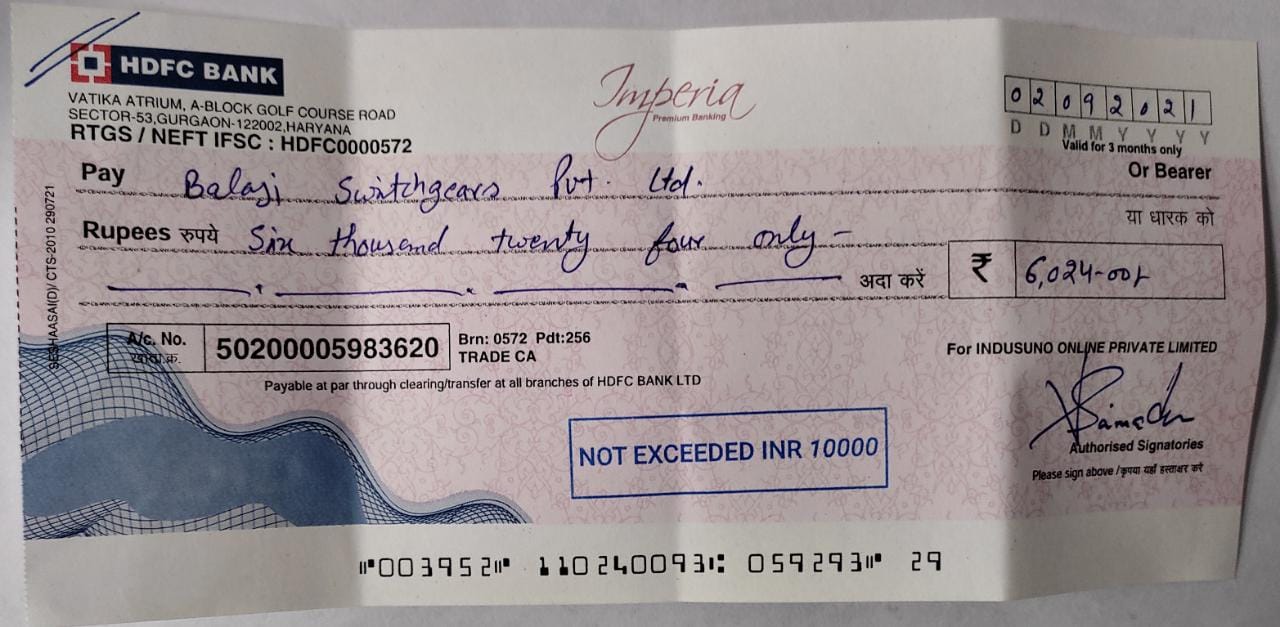 HDFC BANK
VATIKA ATRIUM, A-BLOCK GOLF COURSE ROAD
SECTOR-53,GURGAON-122002,HARYANA
RTGS / NEFT IFSC : HDFC0000572
Imperia
Premium Banking
0 2 0 9 2 0 2 1
D D M M Y Y Y Y
Valid for 3 months only
Pay Balaji Switchgears Pvt. Ltd. Or Bearer
या धारक को
Rupees रुपये Six thousand twenty four only -
अदा करें ₹ 6,024-00/-
SESHAASAI(D)/ CTS-2010 290721
A/c. No. 50200005983620 Brn: 0572 Pdt:256
TRADE CA
Payable at par through clearing/transfer at all branches of HDFC BANK LTD
For INDUSUNO ONLINE PRIVATE LIMITED
NOT EXCEEDED INR 10000
Authorised Signatories
Please sign above /कृपया यहाँ हस्ताक्षर करें
⑈003952⑈ 110240093⑆ 059293⑈ 29